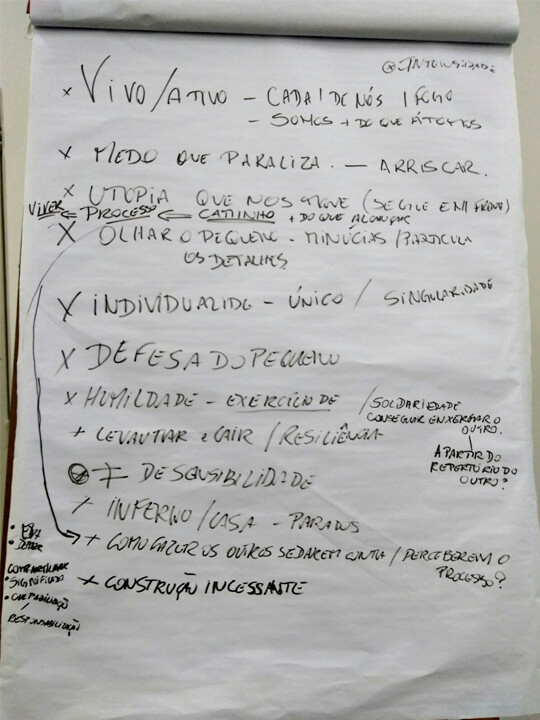 @INTENSIDADE
x VIVO/ATIVO - CADA 1 DE NÓS 1 FOGO
- SOMOS + DO QUE ÁTOMOS
x MEDO QUE PARALIZA. — ARRISCAR.
x UTOPIA QUE NOS MOVE (SEGUE EM FRENTE)
VIVER ← PROCESSO ← CAMINHO + DO QUE ALCANÇAR
x OLHAR O PEQUENO - MINÚCIAS/PARTÍCULA
OS DETALHES
x INDIVIDUALIDE - ÚNICO / SINGULARIDADE
x DEFESA DO PEQUENO
x HUMILDADE - EXERCÍCIO DE / SOLDARIEDADE
CONSEGUIR ENXERGAR O
OUTRO.
A PARTIR DO
REPERTÓRIO DO
OUTRO?
+ LEVANTAR e CAIR / RESILIÊNCIA
≠ DE SENSIBILIDADE
/ INFERNO/CASA - PARAÍSO
+ COMO FAZER OS OUTROS SE DAREM CONTA / PERCEBEREM O
PROCESSO?
COMPARTILHAR
• SIGNIFICADO
/
RESPONSABILIZAÇÃO
+ CONSTRUÇÃO INCESSANTE